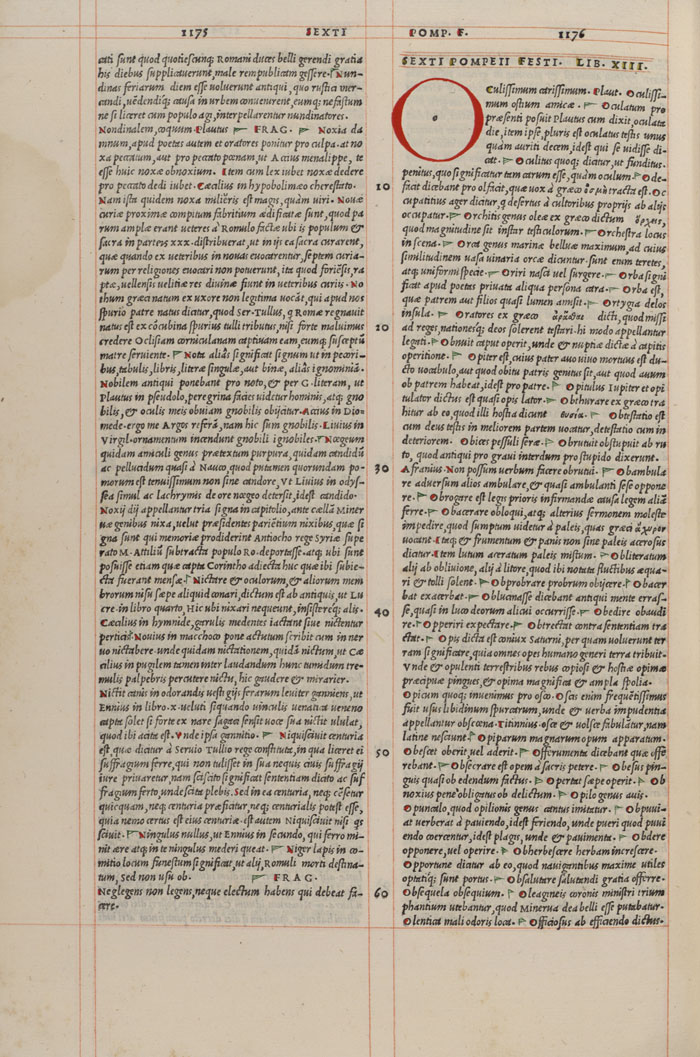 1175 SEXTI
cati sunt quod quotiescunq; Romani duces belli gerendi gratia
his diebus supplicauerunt, male rempublicam gessere. Nun-
dinas feriarum diem esse uoluerunt antiqui, quo rustici mer-
candi, uēdendiq; causa in urbem conuenirent, eumq; nefastum
ne si liceret cum populo agi, interpellarentur nundinatores.
Nondinalem, coquum. Plautus FRAG. Noxia da
mnum, apud poetas autem et oratores ponitur pro culpa. at no
xa peccatum, aut pro peccato pœnam, ut Accius menalippe, te
esse huic noxæ obnoxium. Item cum lex iubet noxæ dedere
pro peccato dedi iubet. Cæcilius in hypobolimæo cherestrato.
Nam ista quidem noxa milieris est magis, quàm uiri. Nouæ
curiæ proximæ compitum fabritium ædificatæ sunt, quod pa
rum amplæ erant ueteres à Romulo factæ ubi is populum &
sacra in parteis xxx. distribuerat, ut in ijs ea sacra curarent,
quæ quando ex ueteribus in nouas euocarentur, septem curia-
rum per religiones euocari non potuerunt, ita quod foriēsis, ra
ptæ, uellensis uelitiæ res diuinæ fiunt in ueteribus curijs. No
thum græci natum ex uxore non legitima uocāt, qui apud nos
spurio patre natus dicitur, quod Ser. Tullus, q Romæ regnauit
natus est ex cōcubina spurius tulli tributus, nisi forte maluimus
credere Oclisiam corniculanam captiuam eam, eumq; susceptū
matre seruiente. Nota alias significat signum ut in pecori-
bus, tabulis, libris, literæ singulæ, aut binæ, alias ignominiā.
Nobilem antiqui ponebant pro noto, & per G. literam, ut
Plautus in pseudolo, peregrina facies uidetur hominis, atq; gno
bilis, & oculis meis obuiam gnobilis obijcitur. Actius in Dio-
mede. ergo me Argos referā, nam hic sum gnobilis. Liuius in
Virgil. ornamentum incendunt gnobili ignobiles. Nocegum
quidam amiculi genus prætextum purpura, quidam candidū
ac pellucidum quasi à Nauco, quod putamen quorundam po-
morum est tenuissimum non sine candore, Vt Liuius in odys-
sea simul ac lachrymis de ore nocgeo detersit, idest candido.
Noxij dij appellantur tria signa in capitolio, ante cællā Miner
uæ genibus nixa, uelut præsidentes parientium nixibus, quæ si
gna sunt qui memoriæ prodiderint Antiocho rege Syriæ supe
rato M. Attiliū subtracta populo Ro. deportasse. atq; ubi sunt
posuisse etiam quæ capta Corintho adiecta huc quæ ibi subie-
cta fuerant mensæ. Nictare & oculorum, & aliorum mem
brorum nisu sæpe aliquid conari, dictum est ab antiquis, ut Lu
cre. in libro quarto, Hic ubi nixari nequeunt, insistereq; alis.
Cæcilius in hymnide, garulis medentes iactent siue nictentur
perticis. Nouius in macchoco pone actutum scribit cum in ner
uo nictabere. unde quidam nictationem, quidā nictum, ut Cæ
cilius in pugilem tamen inter laudandum hunc tumdum tre-
mulis palpebris percutere nictu, hic gaudere & mirarier.
Nictit canis in odorandis uestigijs ferarum leuiter ganniens, ut
Ennius in libro. x. ueluti siquando uinculis uenatica ueneno
capta solet si forte ex nare sagaca sensit uoce sua nictit ululat,
quod ibi acita est. Vnde ipsa gannitio. Niquiscirit centuria
est, quæ dicitur à Seruio Tullio rege constituta, in qua liceret ei
suffragium ferre, qui non tulisset in sua nequis ciuis suffragij
iure priuaretur, nam sciscito significat sententiam dicito ac suf
fragium ferto, unde scita plebis. Sed in ea centuria, neq; cēsetur
quicquam, neq; centuria præficitur, neq; centurialis potest esse,
quia nemo certus est eius centuriæ. est autem Niquisciuit nisi qs
sciuit. Ningulus nullus, ut Ennius in secundo, qui ferro mi-
nitære atq; in te ningulus mederi queat. Niger lapis in co-
mitio locum funestum significat, ut alij, Romuli morti destina-
tum, sed non usu ob. FRAG.
Neglegens non legens, neque electum habens qui debeat fa-
cere.
10
20
30
40
50
60
POMP. F. 1176
SEXTI POMPEII FESTI. LIB. XIII.
Oculissimum carissimum. Plaut. Oculissi-
mum ostium amicæ. Oculatum pro
præsenti posuit Plautus cum dixit, oculata
die, item ipse, pluris est oculatus testis unus
quàm auriti decem, idest qui se uidisse di-
cat. Occultus quoq; dicitur, ut funditus.
penitus, quo significatur tem certum esse, quàm oculum. Ode-
facit dicebant pro olfacit, quæ uox à græco ὀσμὴ tracta est. Oc
cupatitius ager dicitur, q desertus à cultoribus proprijs ab alijs
occupatur. Orchitis genus oleæ ex græco dictum ὄρχεις,
quod magnitudine sit instar testiculorum. Orchestra locus
in scena. Orca genus marinæ belluæ maximum, ad cuius
similitudinem uasa uinaria orcæ dicuntur. sunt enim teretes,
atq; uniformi specie. Oriri nasci uel surgere. Orba signi
ficat apud poetas priuata aliqua persona cara. Orba est,
quæ patrem aut filios quasi lumen amisit. Ortygia delos
insula. Oratores ex græco ἀρητῆρες dicti, quod missi
ad reges, nationesq; deos solerent testari. hi modo appellantur
legati. Obnuit caput operit, unde & nuptiæ dictæ à capitis
operitione. Opiter est, cuius pater auo uiuo mortuus est du-
cto uocabulo, aut quod obitu patris genitus sit, aut quod auum
ob patrem habeat, idest pro patre. Opitulus Iupiter et opi
tulator dictus est quasi opis lator. Obthurare ex græco tra
hitur ab eo, quod illi hostia dicunt θυσία. Obtestatio est
cum deus testis in meliorem partem uocatur, detestatio cum in
deteriorem. Obices pessuli seræ. Obrutuit obstupuit ab ru
to, quod antiqui pro graui interdum pro stupido dixerunt.
Afranius. Non possum uerbum facere obrutui. Obambula
re aduersum alios ambulare, & quasi ambulanti sese oppone
re. Obrogare est legis prioris infirmandæ causa legem aliā
ferre. Obacerare obloqui, atq; alterius sermonem moleste
impedire, quod sumptum uidetur à paleis, quas græci ἄχυρον
uocant. Itaq; & frumentum & panis non sine paleis acerosus
dicitur. Item lutum aceratum paleis mistum. Obliteratum
alij ab obliuione, alij à litore, quod ibi notata fluctibus æqua-
ri & tolli solent. Obprobrare probrum obijcere. Obacer
bat exacerbat. Oblucuasse dicebant antiqui mente errasse,
quasi in luco deorum alicui occurrisse. Obedire obaudi
re. Opperiri expectare. Obtrectat contra sententiam tra
ctat. Opis dicta est coniux Saturni, per quam uoluerunt ter
ram significare, quia omnes opes humano generi terra tribuit.
Vnde & opulenti terrestribus rebus copiosi & hostiæ opimæ
præcipue pingues, & opima magnifica & ampla spolia.
Opicum quoq; inuenimus pro osco. Osci enim frequētissimus
fuit usus libidinum spurcarum, unde & uerba impudentia
appellantur obscœna. Titinnius. osce & uolsce fabulātur, nam
latine nesciunt. Opiparum magnarum opum apparatum.
Obescet oberit, uel aderit. Offerumenta dicebant quæ offe-
rebant. Obsecrare est opem à sacris petere. Obesus pin-
guis quasi ob edendum factus. Opertat sæpe operit. Ob
noxius pene obligatus ob delictum. Opilo genus auis.
Opunculo, quod opilionis genus cantus imitatur. Obpuui-
at uerberat à pauiendo, idest feriendo, unde pueri quod puui
endo coercentur, idest plagis, unde & pauimenta. Obdere
opponere, uel operire. Obherbescere herbam increscere.
Opportune dicitur ab eo, quod nauigantibus maxime utiles
optatiq; sunt portus. Obsalutare salutandi gratia offerre.
Obsequela obsequium. Oleagineis coronis ministri trium
phantium utebantur, quod Minerua dea belli esse putabatur.
Olentica mali odoris loca. Officiosus ab efficiendo dictus.